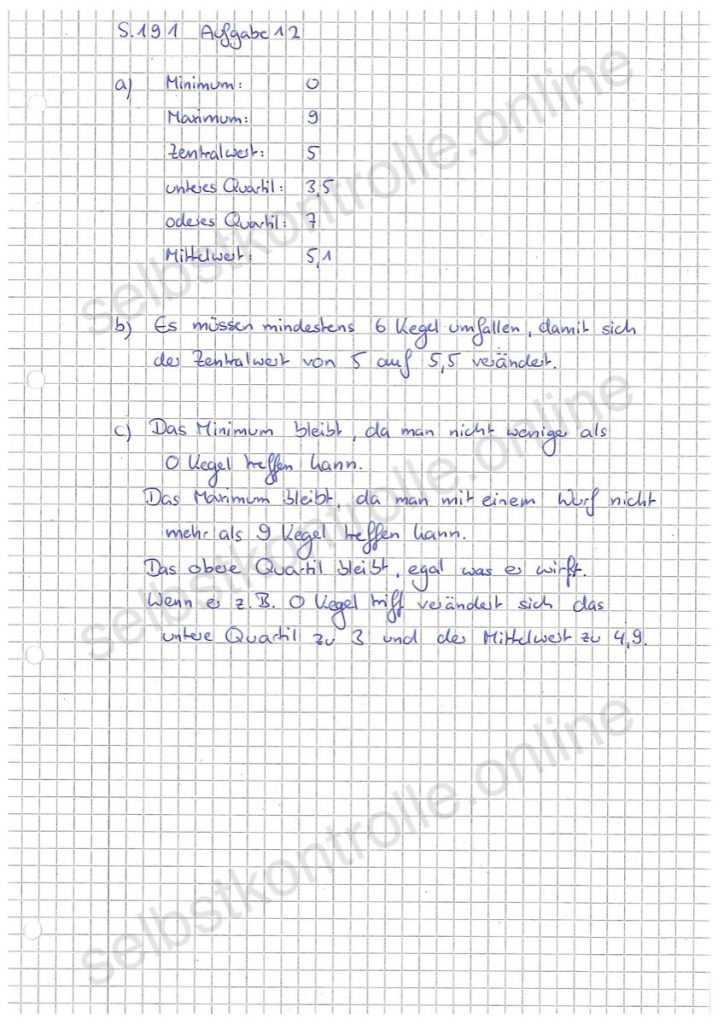 S.191 Aufgabe 12
a) Minimum: 0
Maximum: 9
Zentralwert: 5
unteres Quartil: 3,5
oderes Quartil: 7
Mittelwert: 5,1
b) Es müssen mindestens 6 Kegel umfallen, damit sich
der Zentralwert von 5 auf 5,5 verändert.
c) Das Minimum bleibt, da man nicht weniger als
0 Kegel treffen kann.
Das Maximum bleibt, da man mit einem Wurf nicht
mehr als 9 Kegel treffen kann.
Das obere Quartil bleibt, egal was er wirft.
Wenn er z.B. 0 Kegel triff verändert sich das
untere Quartil zu 3 und der Mittelwert zu 4,9.
selbstkontrolle.online
selbstkontrolle.online
selbstkontrolle.online